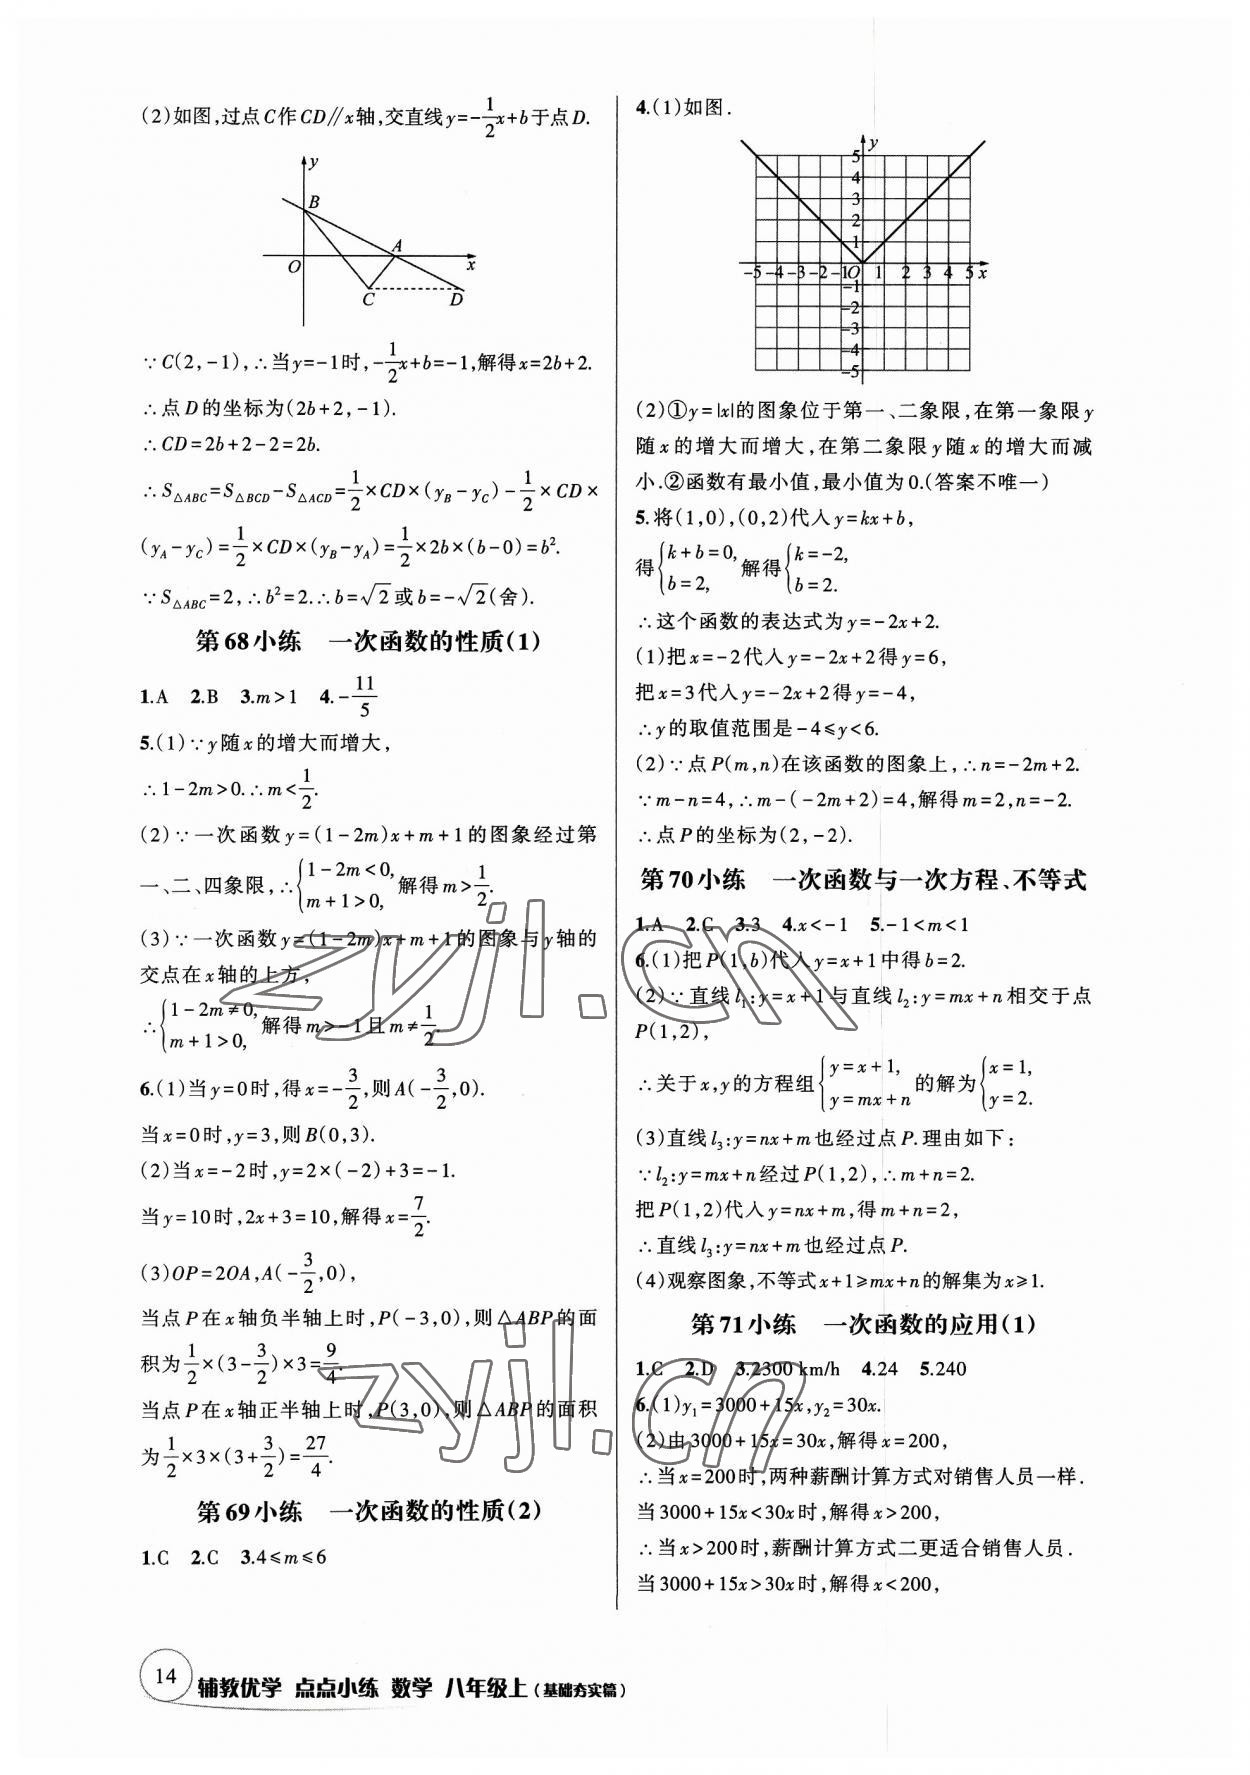 (2)如图,过点C作CD∥x轴,交直线y=-1/2x+b于点D.
y
B
A
O
x
C
D
∵C(2,-1),∴当y=-1时,-1/2x+b=-1,解得x=2b+2.
∴点D的坐标为(2b+2,-1).
∴CD=2b+2-2=2b.
∴S△ABC=S△BCD-S△ACD=1/2×CD×(yB-yC)-1/2×CD×
(yA-yC)=1/2×CD×(yB-yA)=1/2×2b×(b-0)=b².
∵S△ABC=2,∴b²=2.∴b=√2或b=-√2(舍).
第68小练 一次函数的性质(1)
1.A 2.B 3.m>1 4.-11/5
5.(1)∵y随x的增大而增大,
∴1-2m>0.∴m<1/2.
(2)∵一次函数y=(1-2m)x+m+1的图象经过第
一、二、四象限,∴{1-2m<0, m+1>0, 解得m>1/2.
(3)∵一次函数y=(1-2m)x+m+1的图象与y轴的
交点在x轴的上方,
∴{1-2m≠0, m+1>0, 解得m>-1且m≠1/2.
6.(1)当y=0时,得x=-3/2,则A(-3/2,0).
当x=0时,y=3,则B(0,3).
(2)当x=-2时,y=2×(-2)+3=-1.
当y=10时,2x+3=10,解得x=7/2.
(3)OP=2OA,A(-3/2,0),
当点P在x轴负半轴上时,P(-3,0),则△ABP的面
积为1/2×(3-3/2)×3=9/4.
当点P在x轴正半轴上时,P(3,0),则△ABP的面积
为1/2×3×(3+3/2)=27/4.
第69小练 一次函数的性质(2)
1.C 2.C 3.4≤m≤6
4.(1)如图.
y
5
4
3
2
1
-5 -4 -3 -2 -1 O 1 2 3 4 5 x
-1
-2
-3
-4
-5
(2)①y=|x|的图象位于第一、二象限,在第一象限y
随x的增大而增大,在第二象限y随x的增大而减
小.②函数有最小值,最小值为0.(答案不唯一)
5.将(1,0),(0,2)代入y=kx+b,
得{k+b=0, b=2, 解得{k=-2, b=2.
∴这个函数的表达式为y=-2x+2.
(1)把x=-2代入y=-2x+2得y=6,
把x=3代入y=-2x+2得y=-4,
∴y的取值范围是-4≤y<6.
(2)∵点P(m,n)在该函数的图象上,∴n=-2m+2.
∵m-n=4,∴m-(-2m+2)=4,解得m=2,n=-2.
∴点P的坐标为(2,-2).
第70小练 一次函数与一次方程、不等式
1.A 2.C 3.3 4.x<-1 5.-1<m<1
6.(1)把P(1,b)代入y=x+1中得b=2.
(2)∵直线l₁:y=x+1与直线l₂:y=mx+n相交于点
P(1,2),
∴关于x,y的方程组{y=x+1, y=mx+n 的解为{x=1, y=2.
(3)直线l₃:y=nx+m也经过点P.理由如下:
∵l₂:y=mx+n经过P(1,2),∴m+n=2.
把P(1,2)代入y=nx+m,得m+n=2,
∴直线l₃:y=nx+m也经过点P.
(4)观察图象,不等式x+1≥mx+n的解集为x≥1.
第71小练 一次函数的应用(1)
1.C 2.D 3.2300 km/h 4.24 5.240
6.(1)y₁=3000+15x,y₂=30x.
(2)由3000+15x=30x,解得x=200,
∴当x=200时,两种薪酬计算方式对销售人员一样.
当3000+15x<30x时,解得x>200,
∴当x>200时,薪酬计算方式二更适合销售人员.
当3000+15x>30x时,解得x<200,
zyjl.cn
zyjl.cn
14 辅教优学 点点小练 数学 八年级上(基础夯实篇)